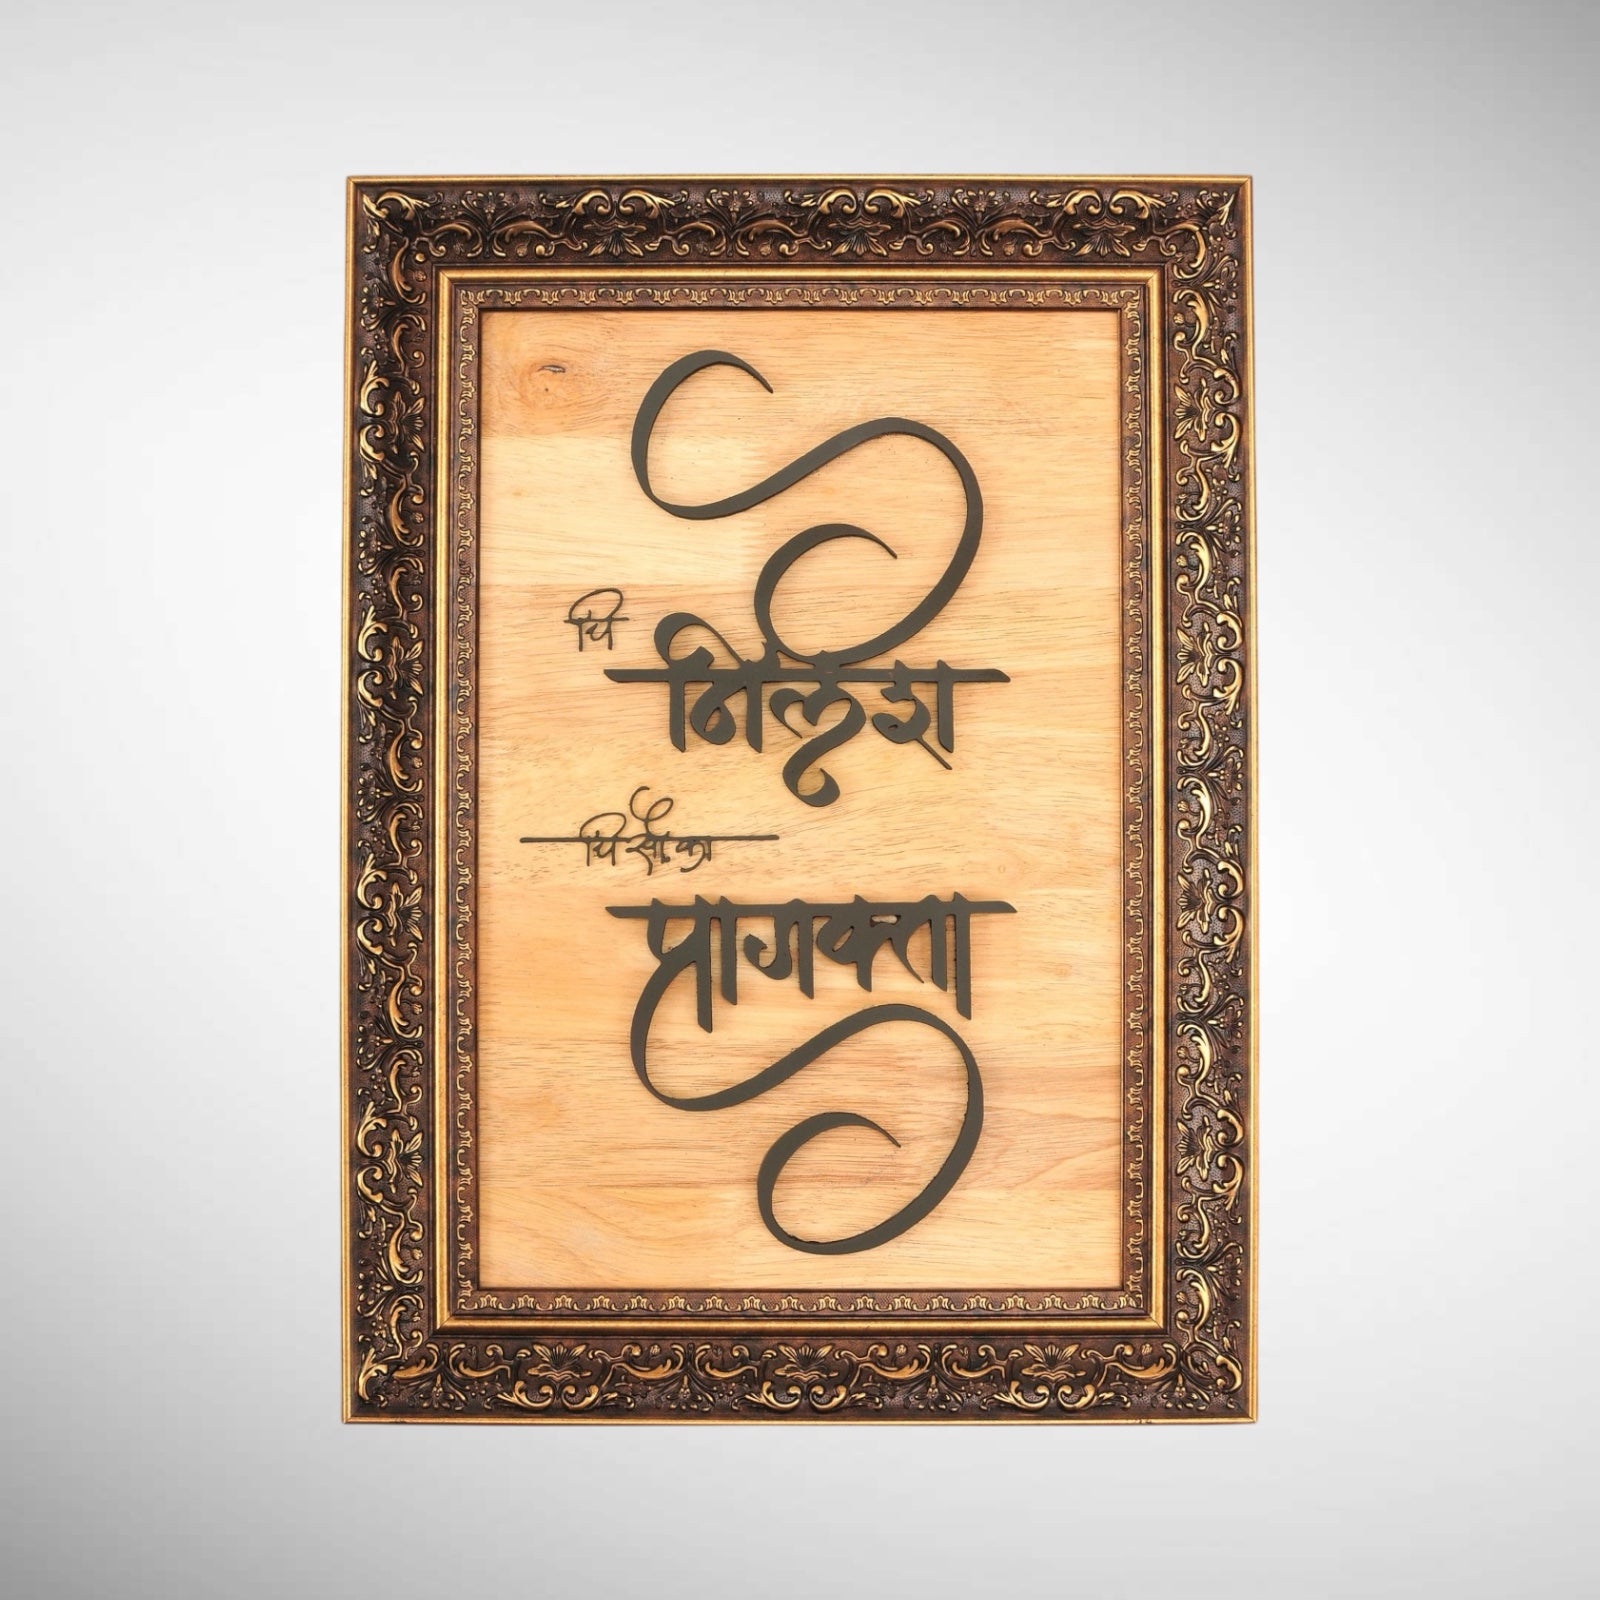 चि
निलेश
चि सौ का
प्राजक्ता